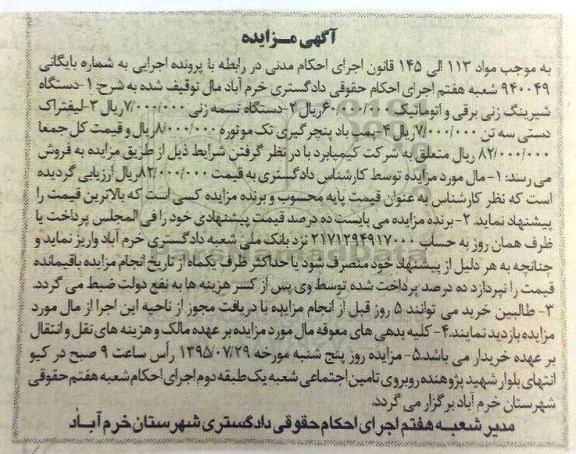 آگهی مزایده
به موجب مواد ۱۱۳ الی ۱۴۵ قانون اجرای احکام مدنی در رابطه با پرونده اجرایی به شماره بایگانی
۹۴۰۰۴۹ شعبه هفتم اجرای احکام حقوقی دادگستری خرم آباد مال توقیف شده به شرح ۱-دستگاه
شیرینگ زنی برقی و اتوماتیک ۶۰/۰۰۰/۰۰۰ریال ۲-دستگاه تسمه زنی ۷/۰۰۰/۰۰۰ریال ۳-لیفتراک
دستی سه تن ۷/۰۰۰/۰۰۰ریال ۴-پمپ باد پنچرگیری تک موتوره ۸/۰۰۰/۰۰۰ریال و قیمت کل جمعا
۸۲/۰۰۰/۰۰۰ ریال متعلق به شرکت کیمیابرد با در نظر گرفتن شرایط ذیل از طریق مزایده به فروش
می رسند: ۱-مال مورد مزایده توسط کارشناس دادگستری به قیمت ۸۲/۰۰۰/۰۰۰ریال ارزیابی گردیده
است که نظر کارشناس به عنوان قیمت پایه محسوب و برنده مزایده کسی است که بالاترین قیمت را
پیشنهاد نماید. ۲-برنده مزایده می بایست ده درصد قیمت پیشنهادی خود را فی المجلس پرداخت یا
ظرف همان روز به حساب ۲۱۷۱۲۹۴۹۱۷۰۰۰ نزد بانک ملی شعبه دادگستری خرم آباد واریز نماید و
چنانچه به هر دلیل از پیشنهاد خود منصرف شود یا حداکثر ظرف یکماه از تاریخ انجام مزایده باقیمانده
قیمت را نپردازد ده درصد پرداخت شده توسط وی پس از کسر هزینه ها به نفع دولت ضبط می گردد.
۳- طالبین خرید می توانند ۵ روز قبل از انجام مزایده با دریافت مجوز از ناحیه این اجرا از مال مورد
مزایده بازدید نمایند.۴- کلیه بدهی های معوقه مال مورد مزایده بر عهده مالک و هزینه های نقل و انتقال
بر عهده خریدار می باشد.۵- مزایده روز پنج شنبه مورخه ۱۳۹۵/۰۷/۲۹ رأس ساعت ۹ صبح در کیو
انتهای بلوار شهید پژوهنده روبروی تامین اجتماعی شعبه یک طبقه دوم اجرای احکام شعبه هفتم حقوقی
شهرستان خرم آباد برگزار می گردد.
مدیر شعبه هفتم اجرای احکام حقوقی دادگستری شهرستان خرم آباد